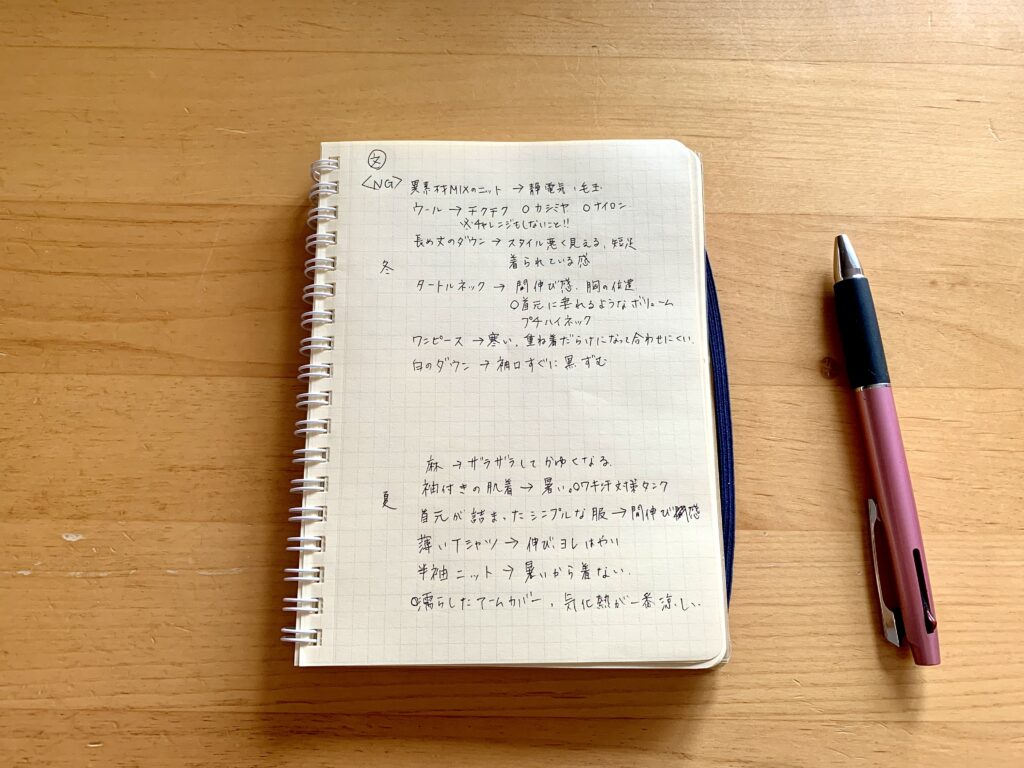 ㊛
<NG> 異素材MIXのニット → 静電気、毛玉
ウール → チクチク ○カシミヤ ○ナイロン
※チャレンジもしないこと!!
長め丈のダウン → スタイル悪く見える、短足
着られている感
冬
タートルネック → 間伸び感、胸の位置
○首元に垂れるようなボリューム
プチハイネック
ワンピース → 寒い、重ね着だらけになって合わせにくい。
白のダウン → 袖口すぐに黒ずむ
麻 → ザラザラしてかゆくなる。
袖付きの肌着 → 暑い。○ワキ汗対策タンク
夏
首元が詰まったシンプルな服 → 間伸び感
薄いTシャツ → 伸び、ヨレはやい
半袖ニット → 暑いから着ない。
○濡らしたアームカバー、気化熱が一番涼しい。